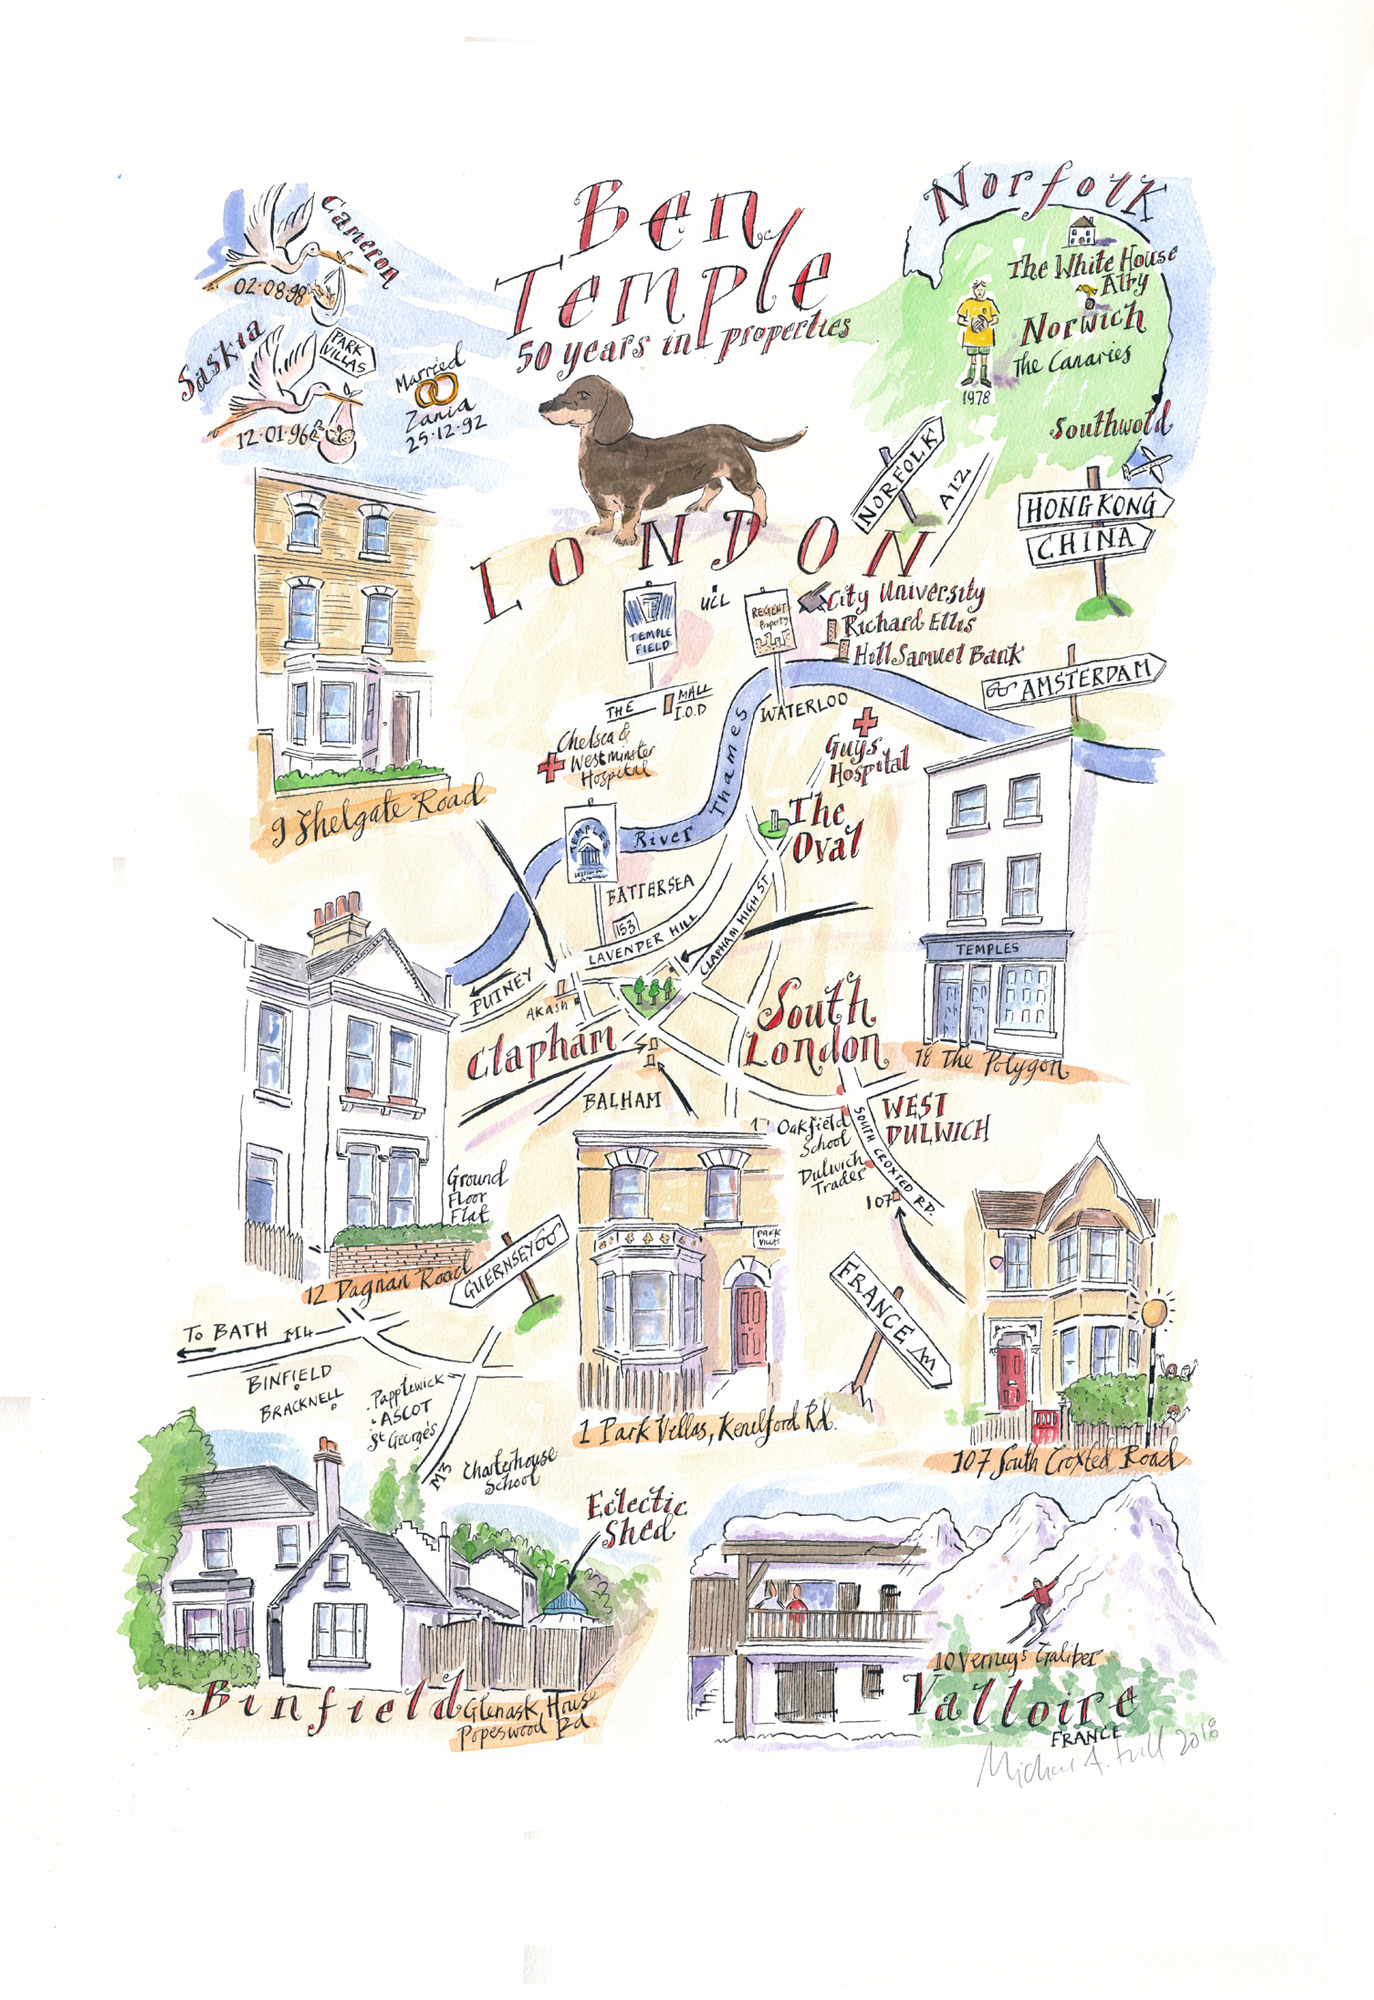 Ben
Temple
50 years in properties
Cameron
02·08·98
Saskia
PARK
VILLAS
12·01·96
Married
Zania
25·12·92
Norfolk
The White House
Alby
Norwich
The Canaries
1978
Southwold
NORFOLK
A12
HONG KONG
CHINA
LONDON
TEMPLE
FIELD
UCL
REGENT
Property
City University
Richard Ellis
Hill Samuel Bank
AMSTERDAM
THE MALL
I.O.D
WATERLOO
Chelsea &
Westminster
Hospital
Guys
Hospital
River Thames
The
Oval
9 Shelgate Road
TEMPLES
BATTERSEA
153
LAVENDER HILL
CLAPHAM HIGH ST
PUTNEY
AKASH
Clapham
South
London
TEMPLES
18 The Polygon
BALHAM
WEST
DULWICH
Oakfield
School
Dulwich
Trader
SOUTH CROXTED RD.
107
Ground
Floor
Flat
12 Dagnan Road
GUERNSEY
PARK
VILLAS
1 Park Villas, Kenelford Rd.
FRANCE
107 South Croxted Road
To BATH M4
BINFIELD
BRACKNELL
Papplewick
ASCOT
St George's
M3
Charterhouse
School
Eclectic
Shed
Binfield
Glenask House
Popeswood Rd.
10 Verneys Galiber
Valloire
FRANCE
2018